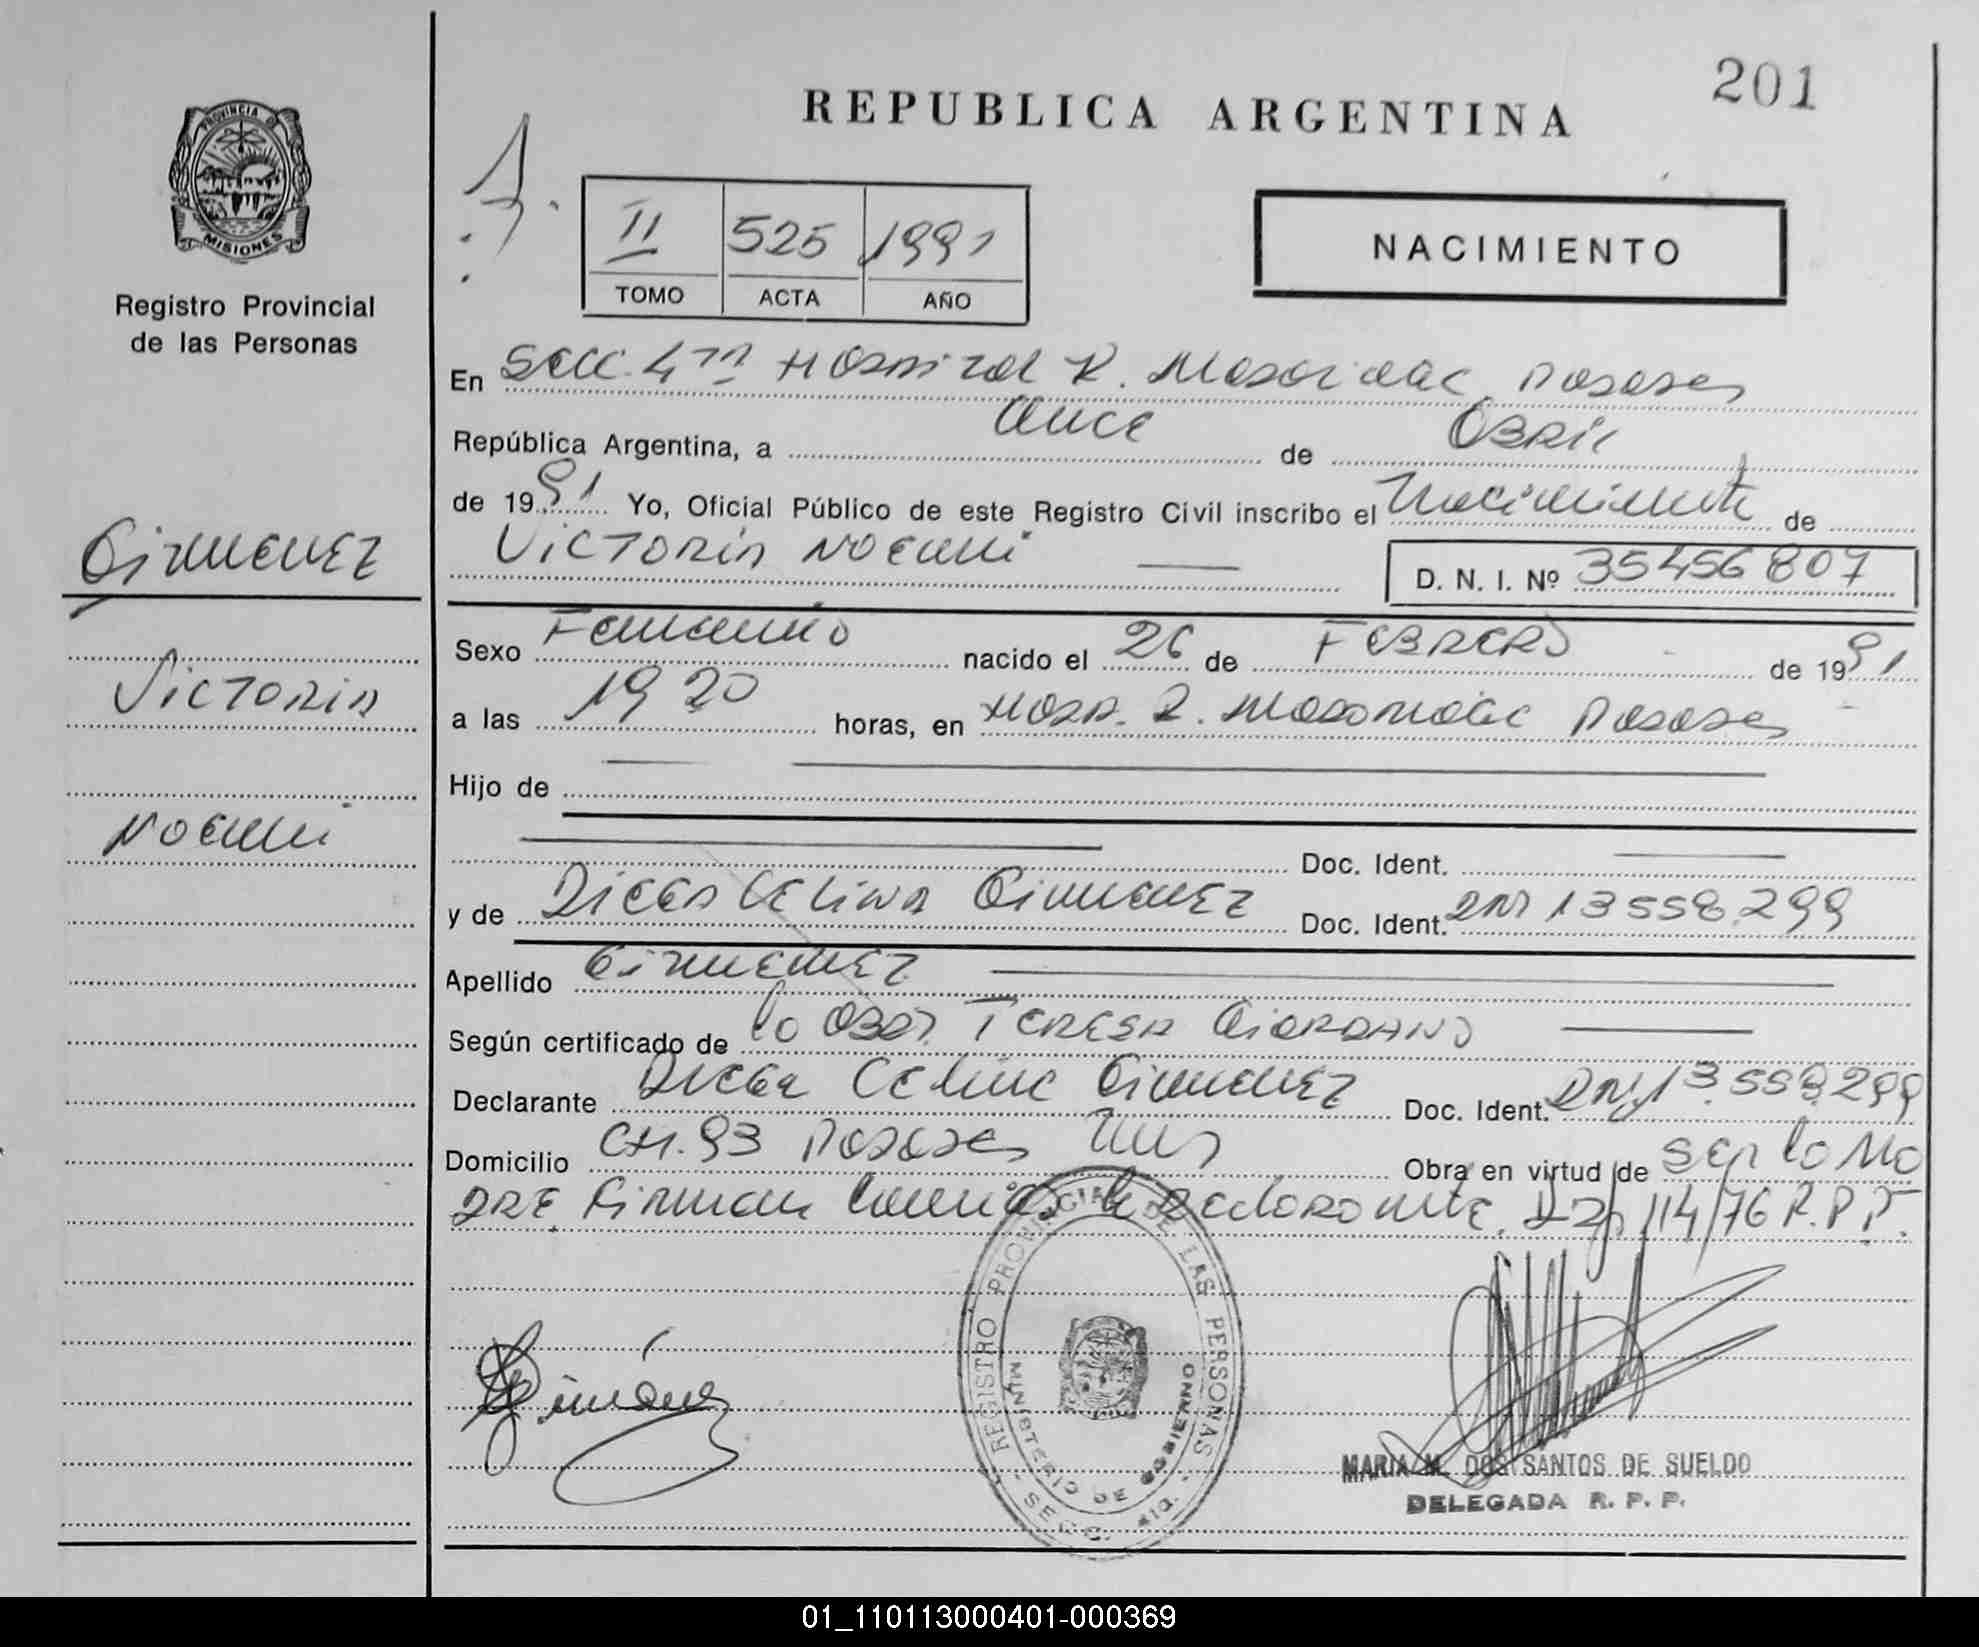 201
REPUBLICA ARGENTINA
PROVINCIA DE
MISIONES
Registro Provincial
de las Personas
II 525 1991
TOMO ACTA AÑO
NACIMIENTO
En Secc. 4ta Hospital R. Madariaga Posadas
República Argentina, a once de Abril
de 1991 Yo, Oficial Público de este Registro Civil inscribo el Nacimiento de
Victoria Noemi
D. N. I. Nº 35456807
GimENEZ
Victoria
Noemi
Sexo Femenino nacido el 26 de FEBRERO de 1991
a las 19 20 horas, en Hosp. R. Madariaga Posadas
Hijo de
Doc. Ident.
y de Celina Gimenez Doc. Ident. DNI 13558.299
Apellido Gimenez
Según certificado de la Obst. TERESA GiORDANO
Declarante Celina Gimenez Doc. Ident. DNI 13.558.299
Domicilio CH. 93 Posadas Mnes Obra en virtud de ser la MA
DRE Firman la declarante. 114/76 R.P.P.
REGISTRO PROVINCIAL DE LAS PERSONAS
MINISTERIO DE GOBIERNO
SECC. 4ta.
MARIA M. DOS SANTOS DE SUELDO
DELEGADA R. P. P.
01_110113000401-000369